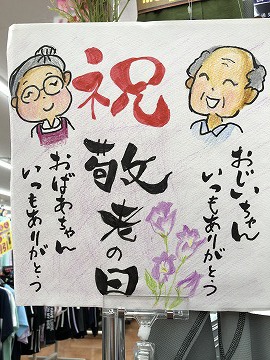 祝
敬老の日
おじいちゃん
いつもありがとう
おばあちゃん
いつもありがとう